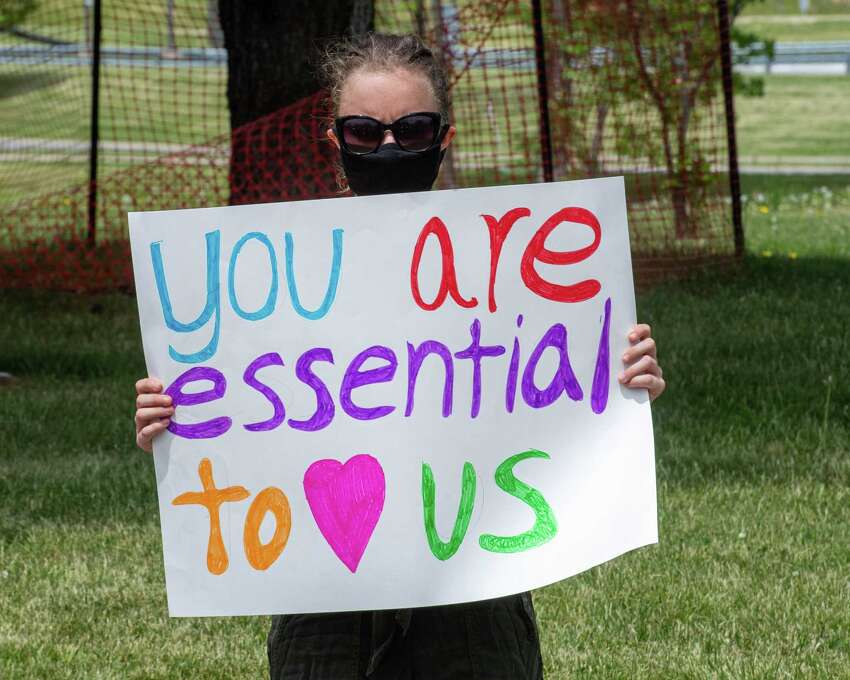 you are
essential
to us